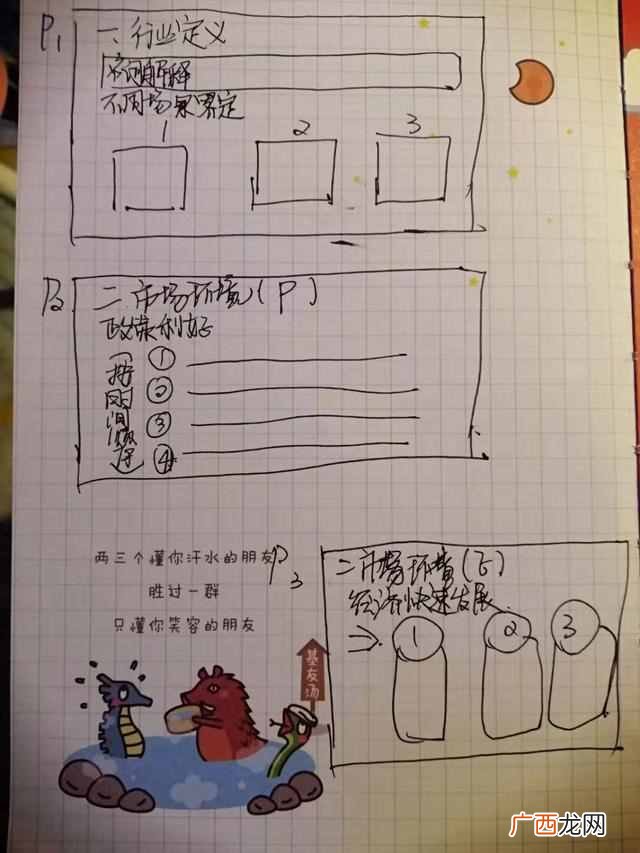 P1
一、行业定义
名词解释
不同场景界定
1 2 3
P2
二、市场环境(P)
政策利好
按时间顺序
①
②
③
④
两三个懂你汗水的朋友
胜过一群
只懂你笑容的朋友
基友汤
P3
二、市场环境(E)
经济快速发展
1 2 3
广西龙网